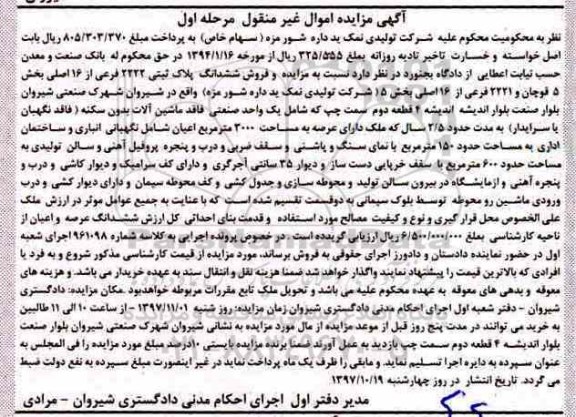 آگهی مزایده اموال غیر منقول مرحله اول
نظر به محکومیت محکوم علیه شرکت تولیدی نمک ید داره شور مزه ( سهام خاص) به پرداخت مبلغ ۸۰۵/۳۰۳/۳۷۰ ریال بابت
اصل خواسته و خسارت تاخیر تادیه روزانه بعلغ ۳۲۵/۵۵۵ ریال از مورخه ۱۳۹۴/۱/۱۶ در حق محکوم له بانک صنعت و معدن
حسب نیابت اعطایی از دادگاه بجنورد در نظر دارد نسبت به مزایده و فروش ششدانگ پلاک ثبتی ۲۲۲۲ فرعی از ۱۶ اصلی بخش
۵ قوچان و ۲۲۲۱ فرعی از ۱۶ اصلی بخش ۵ ( شرکت تولیدی نمک ید داره شور مزه) واقع در شیروان شهرک صنعتی شیروان
بلوار صنعت بلوار اندیشه اندیشه ۴ قطعه دوم سمت چپ که شامل یک واحد صنعتی فاقد ماشین آلات بدون سکنه ( فاقد نگهبان
یا سرایدار) به مدت حدود ۲/۵ سال که ملک دارای عرصه به مساحت ۳۰۰۰ مترمربع اعیان شامل نگهبانی انباری و ساختمان
اداری به مساحت حدود ۱۵۰ مترمربع با نمای سنگ و پاشنی و سقف ضربی و درب و پنجره پروفیل آهنی و سالن تولیدی به
مساحت حدود ۶۰۰ مترمربع با سقف خرپایی دست ساز و دیوار ۳۵ سانتی آجرگری و دارای کف سرامیک و دیوار کاشی و درب و
پنجره آهنی و ازمایشگاه در بیرون سالن تولید و محوطه سازی و جدول کشی و کف محوطه سیمان و دارای دیوار کشی و درب
ورودی ماشین رو محوطه توسط بلوک سیمانی به دوقسمت تقسیم شده است که با عنایت به جمیع عوامل موثر در ارزش ملک
علی الخصوص محل قرار گیری و نوع و کیفیت مصالح مورد استفاده و قدمت بنای احداثی کل ارزش ششدانگ عرصه و اعیان از
ناحیه کارشناسی بعلغ ۶/۵۰۰/۰۰۰/۰۰۰ ریال ارزیابی گردیده است . در خصوص پرونده اجرایی به کلاسه شماره ۹۶۱۰۹۸ اجرای شعبه
اول در حضور نماینده دادستان و دادورز اجرای حقوقی به فروش برساند، مورد مزایده از قیمت کارشناسی مذکور شروع و به فرد یا
افرادی که بالاترین قیمت را پیشنهاد نمایند واگذار خواهد شد ضمنا هزینه نقل و انتقال سند به عهده خریدار می باشد . و هزینه های
معوقه و بدهی های معوقه به عهده محکوم علیه می باشد و تحویل ملک تابع مقررات مربوطه خواهدبود .مکان مزایده: دادگستری
شیروان - دفتر شعبه اول اجرای احکام مدنی دادگستری شیروان زمان مزایده: روز شنبه ۱۳۹۷/۱۱/۰۶ از ساعت ۱۰ الی ۱۱ طالبین
به خرید می توانند در مدت پنج روز قبل از موعد مزایده از مال مورد مزایده به نشانی شیروان شهرک صنعتی شیروان بلوار صنعت
بلوار اندیشه ۴ قطعه دوم سمت چپ بازدید به عمل آورند ضمنا برنده مزایده بایستی ۱۰درصد مبلغ مورد مزایده را فی المجلس به
عنوان سپرده به دایره اجرا تسلیم نماید. و مابقی را ظرف یک ماه پرداخت نماید در غیر اینصورت مبلغ سپرده به نفع دولت ضبط
می گردد. تاریخ انتشار در روز چهارشنبه ۱۳۹۷/۱۰/۱۹
مدیر دفتر اول اجرای احکام مدنی دادگستری شیروان - مرادی